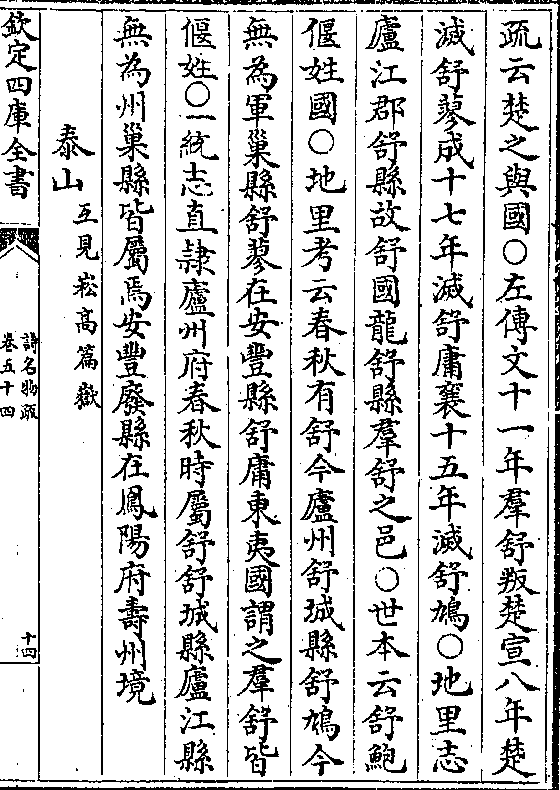 疏云楚之與國○左傳文十一年羣舒叛楚宣八年楚
滅舒蓼成十七年滅舒庸襄十五年滅舒鳩○地里志
廬江郡舒縣故舒國龍舒縣羣舒之邑○世本云舒鮑
偃姓國○地里考云春秋有舒今廬州舒城縣舒鳩今
無為軍巢縣舒蓼在安豐縣舒庸東夷國謂之羣舒皆
偃姓○一統志直隷廬州府春秋時屬舒舒城縣廬江縣
無為州巢縣皆屬焉安豐廢縣在鳳陽府壽州境
泰山互見崧高篇嶽
欽定四庫全書
詩名物疏
卷五十四
十四